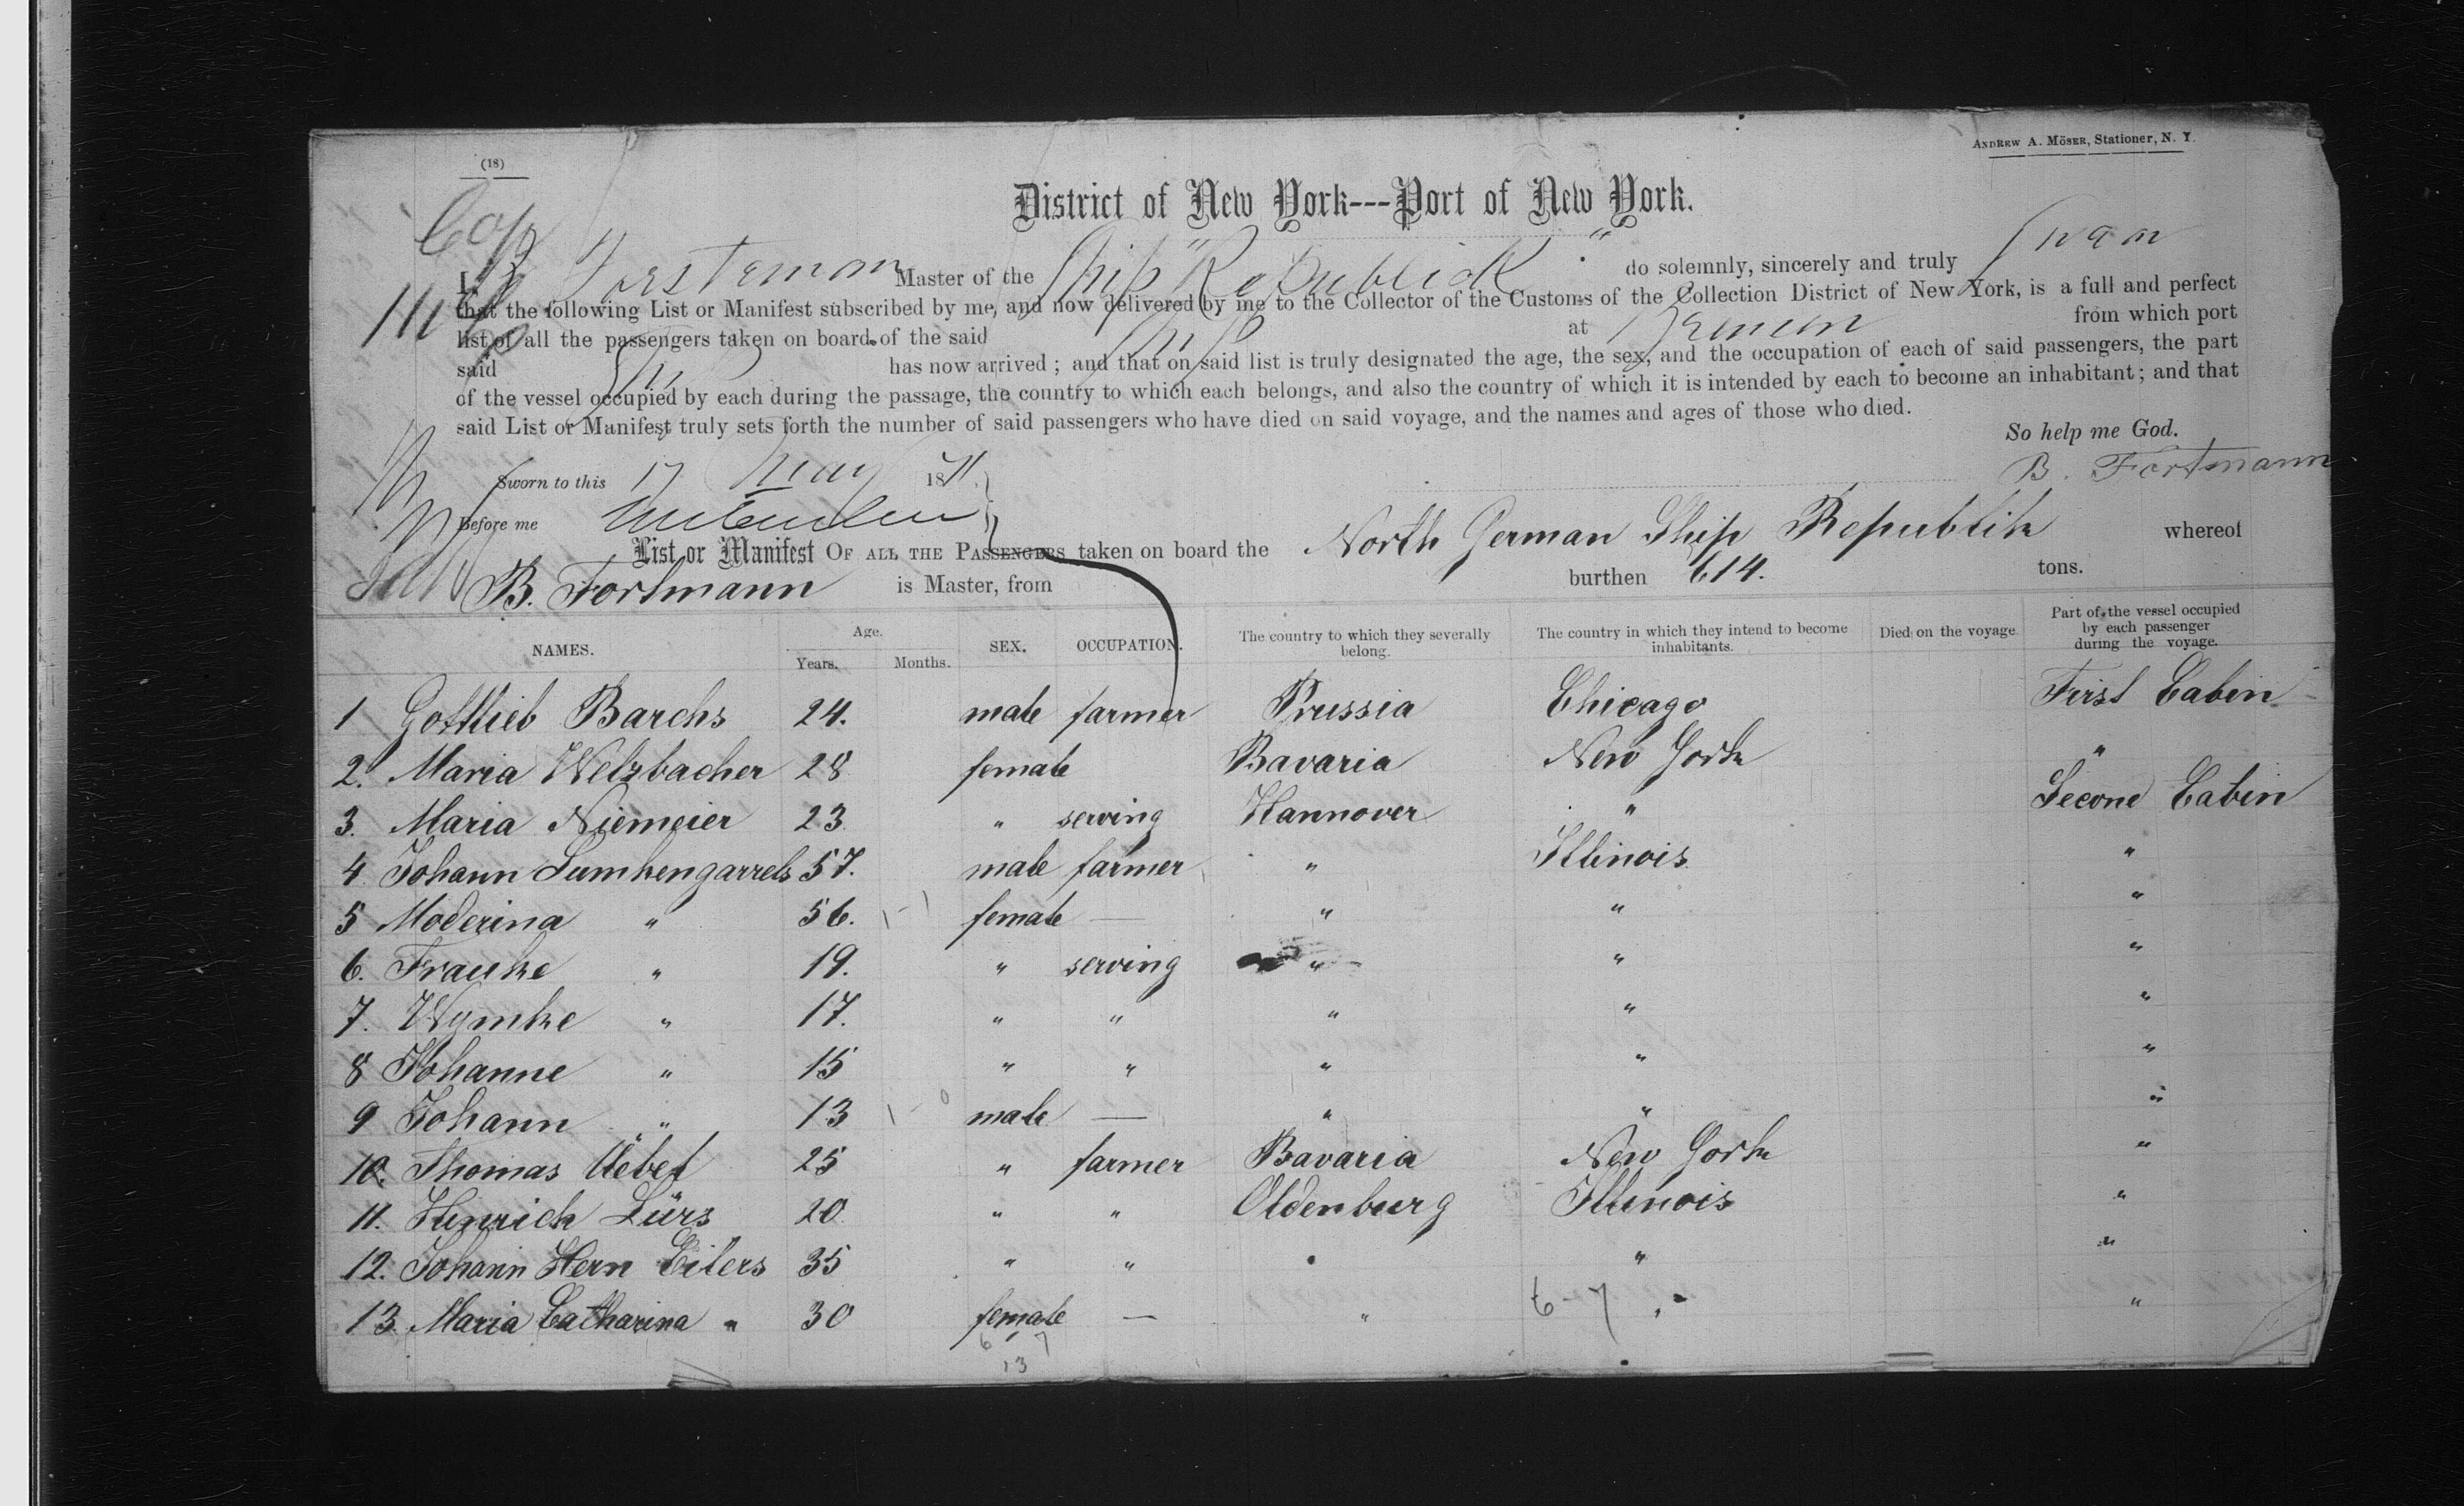 (18)
ANDREW A. MÖSER, Stationer, N. Y.
District of New York---Port of New York.
I, B Forsteman Master of the Ship "Republick" do solemnly, sincerely and truly swear
that the following List or Manifest subscribed by me, and now delivered by me to the Collector of the Customs of the Collection District of New York, is a full and perfect
list of all the passengers taken on board of the said Ship at Bremen from which port
said Ship has now arrived; and that on said list is truly designated the age, the sex, and the occupation of each of said passengers, the part
of the vessel occupied by each during the passage, the country to which each belongs, and also the country of which it is intended by each to become an inhabitant; and that
said List or Manifest truly sets forth the number of said passengers who have died on said voyage, and the names and ages of those who died.
So help me God.
B. Fortmann
Sworn to this 17 May 1871
Before me
List or Manifest OF ALL THE PASSENGERS taken on board the North German Ship Republik whereof
B. Fortmann is Master, from burthen 614. tons.
NAMES. Age. Years. Months. SEX. OCCUPATION. The country to which they severally belong. The country in which they intend to become inhabitants. Died on the voyage. Part of the vessel occupied by each passenger during the voyage.
1 Gottlieb Barchs 24. male farmer Prussia Chicago First Cabin
2. Maria Welzbacher 28 female Bavaria New York "
3. Maria Niemeier 23 " serving Hannover " Second Cabin
4 Johann Lumkengarrels 57. male farmer " Illinois "
5 Moderina " 56. female — " " "
6. Frauke " 19. " serving " " "
7. Wymke " 17. " " " " "
8 Johanne " 15 " " " " "
9 Johann " 13 male — " " "
10. Thomas Uebel 25 " farmer Bavaria New York "
11. Hinrich Lürs 20 " " Oldenburg Illinois "
12. Johann Herm Eilers 35 " " " " "
13. Maria Catharina " 30 female — " " "
6 - 7
6 7
13